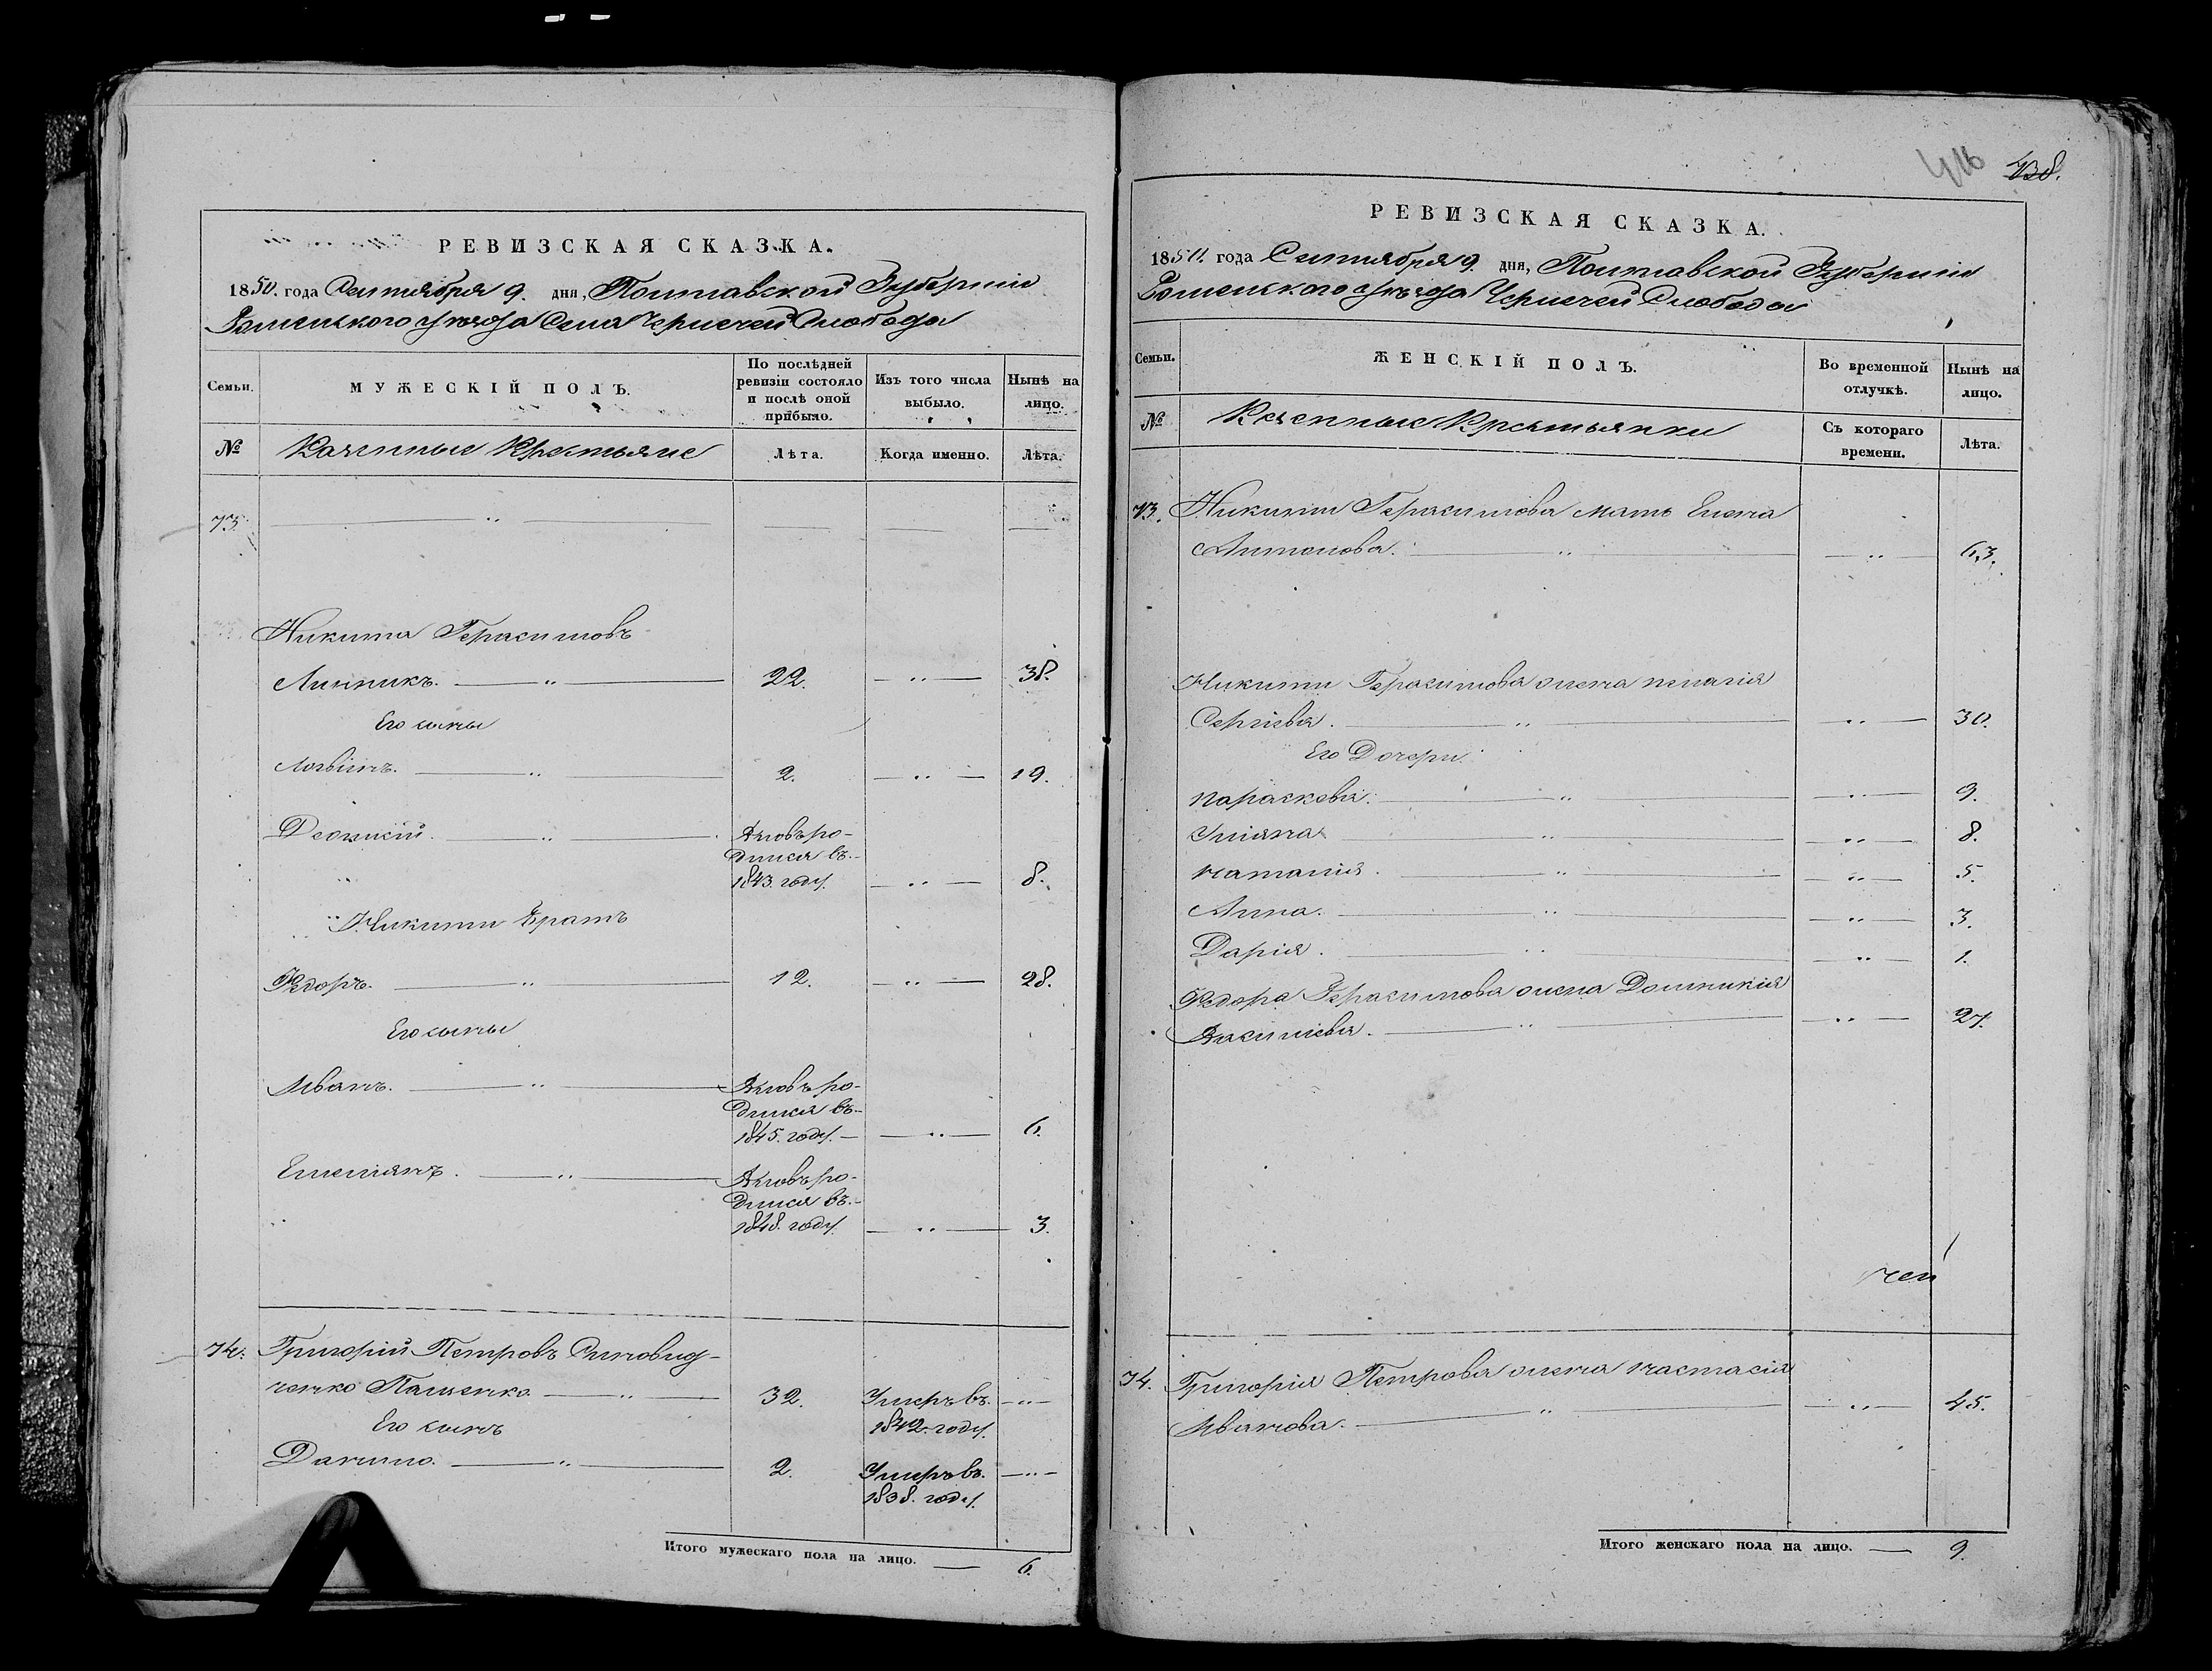 416 438.
РЕВИЗСКАЯ СКАЗКА.
1850. года Сентября 9. дня, Полтавской Губернiи
Роменского уезда Села Чернечей Слободы
Семьи. МУЖЕСКІЙ ПОЛЪ. По послѣдней ревизіи состояло и послѣ оной прибыло. Изъ того числа выбыло. Нынѣ на лицо.
№ Казенные Крестьяне Лѣта. Когда именно. Лѣта.
73.
Никита Герасимовъ
Линникъ. 22. 38.
Его сыны
Логвинъ. 2. 19.
Леонтій. Вновь ро-
дился въ
1843. году. 8.
Никиты братъ
Федоръ. 12. 28.
Его сыны
Иванъ. Вновь ро-
дился въ
1845. году. 6.
Емелянъ. Вновь ро-
дился въ
1848. году. 3.
74. Григорій Петровъ
Пащенко. 32. Умеръ въ
Его сынъ 1842. году.
Данило. 2. Умеръ въ.
1838. году.
Итого мужескаго пола на лицо. 6.
РЕВИЗСКАЯ СКАЗКА.
1850. года Сентября 9. дня, Полтавской Губерніи
Роменского уезда Чернечей Слободы
Семьи. ЖЕНСКІЙ ПОЛЪ. Во временной отлучкѣ. Нынѣ на лицо.
№ Казенные Крестьянки Съ котораго времени. Лѣта.
73. Никиты Герасимова мать Елена
Антонова. 63.
Никиты Герасимова жена пелагія
Сергіева. 30.
Его Дочери
параскевія. 9.
Уліяна 8.
наталія. 5.
Анна. 3.
Дарія. 1.
Федора Герасимова жена Домникія
Василіева. 27.
74. Григорія Петрова жена настасія
Иванова. 45.
Итого женскаго пола на лицо. 9.